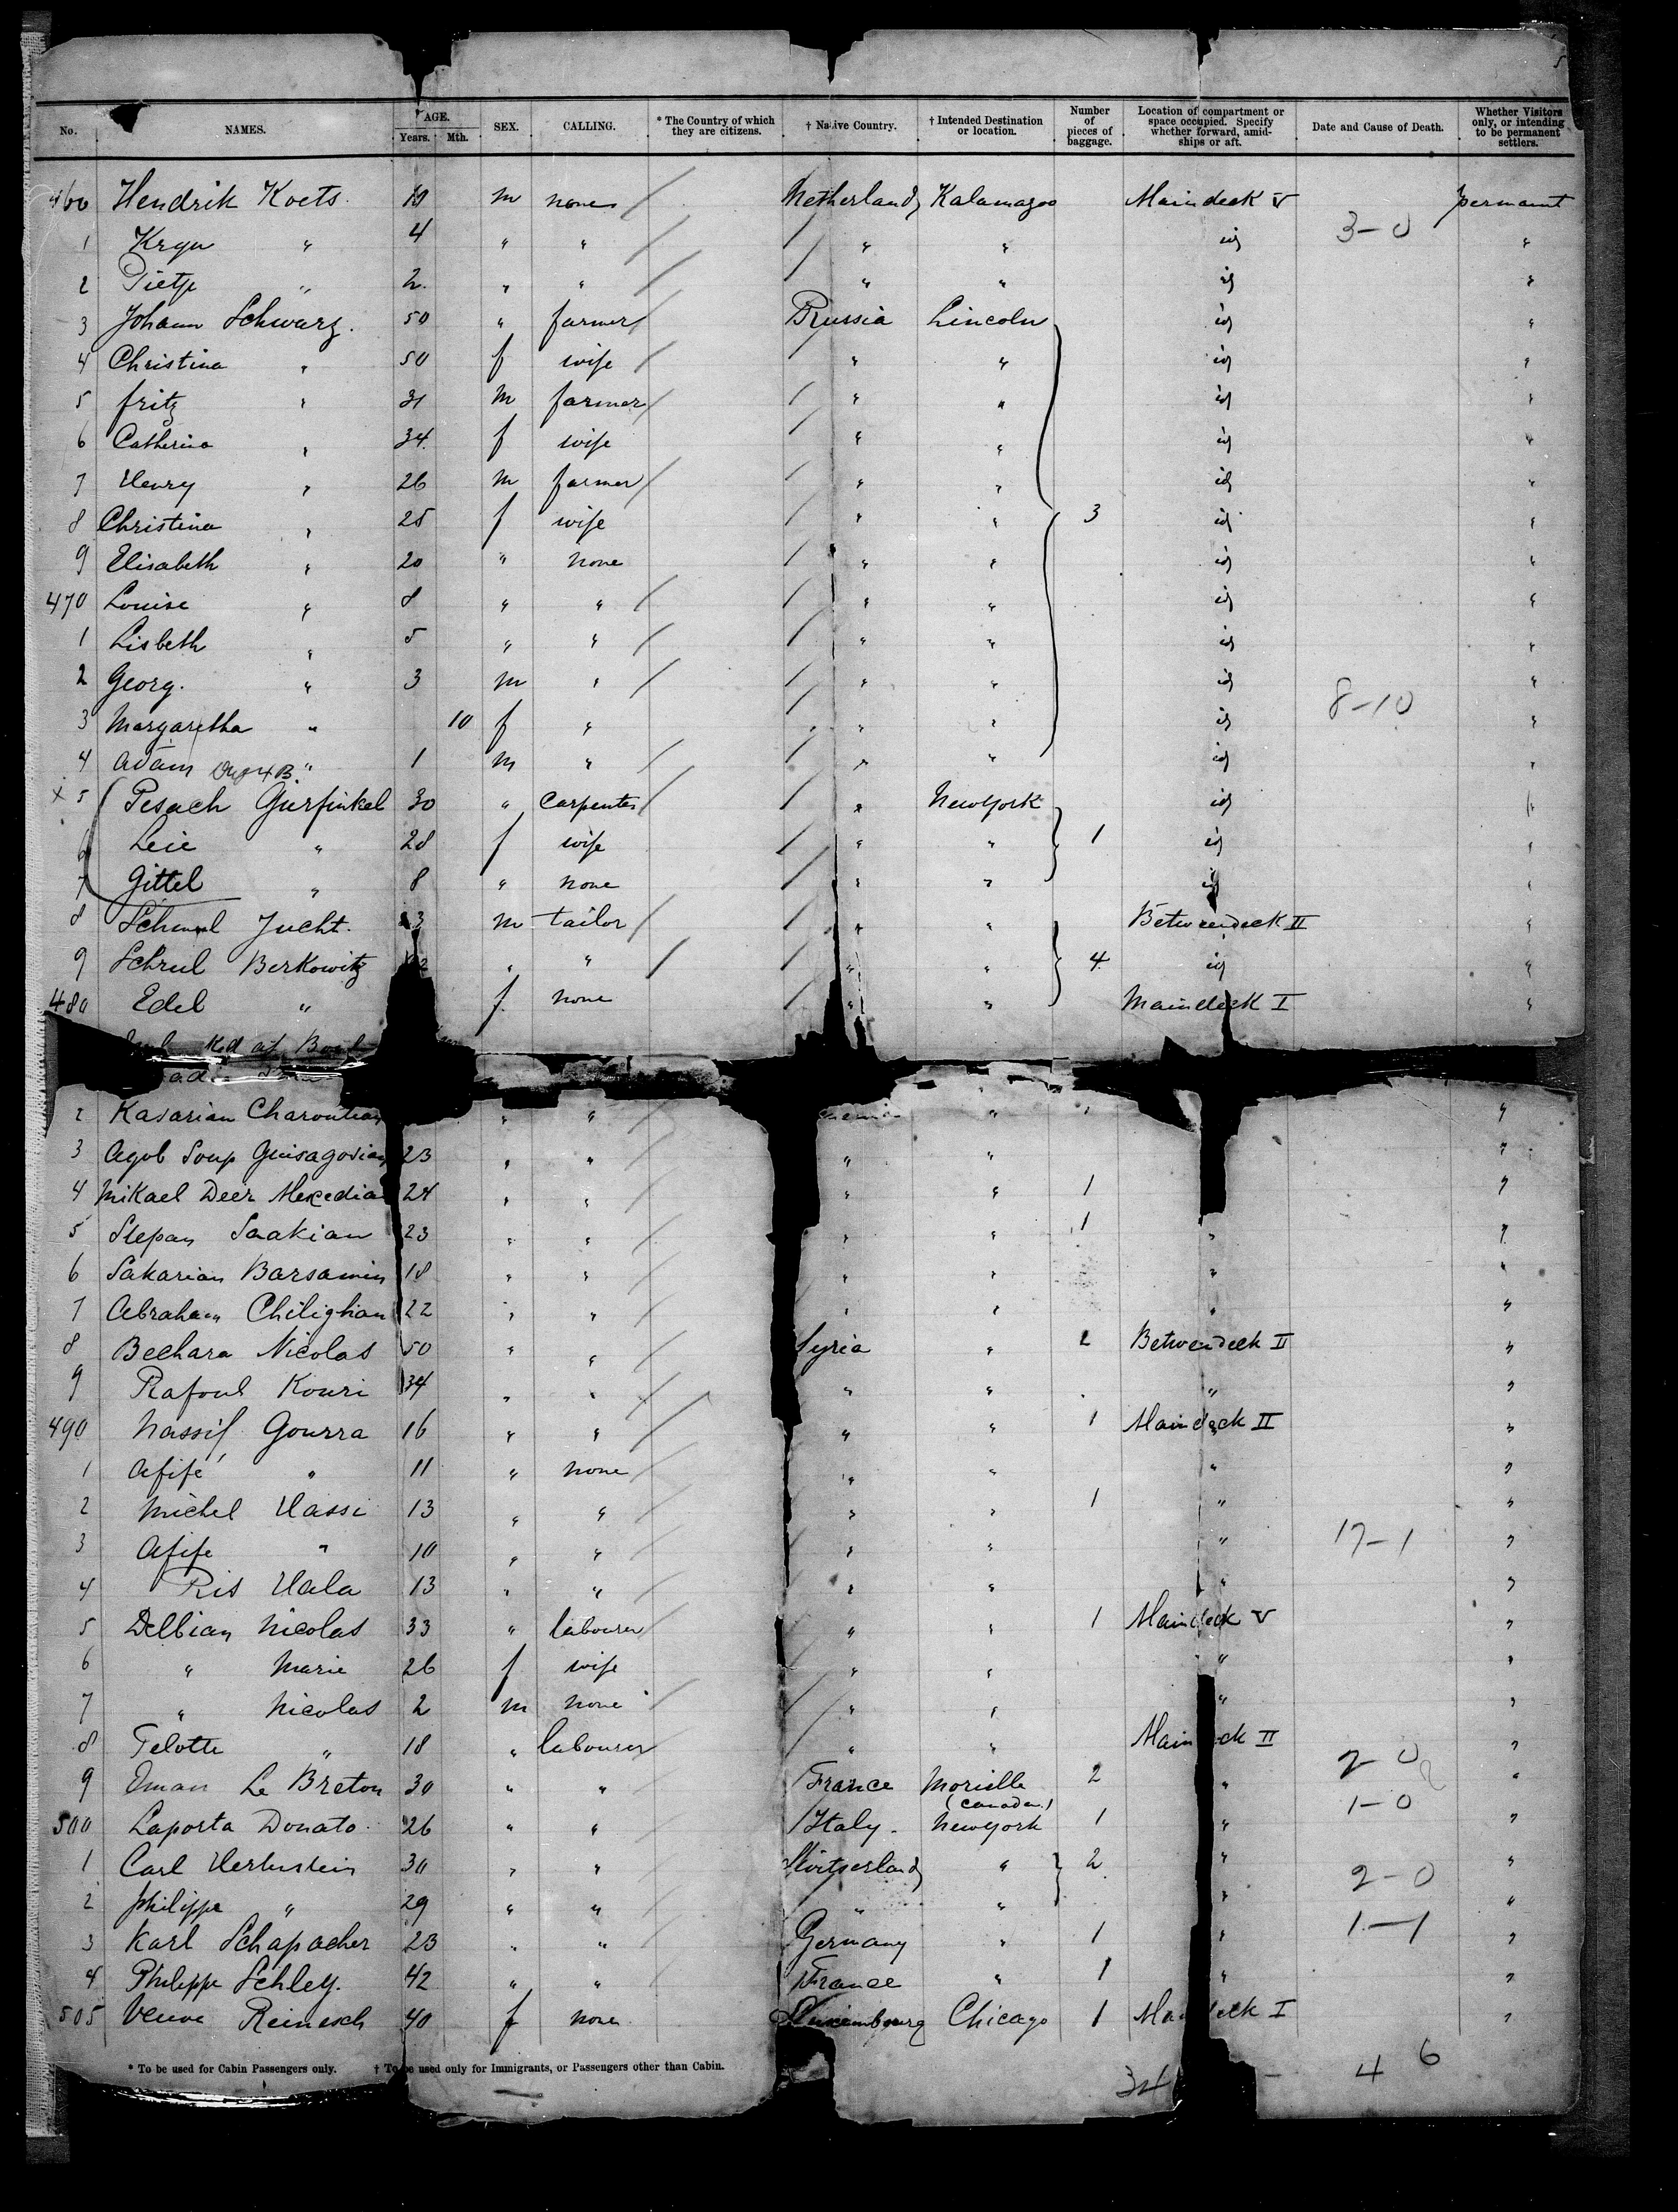 5
No. NAMES. AGE. Years. Mth. SEX. CALLING. * The Country of which they are citizens. † Native Country. † Intended Destination or location. Number of pieces of baggage. Location of compartment or space occupied. Specify whether forward, amidships or aft. Date and Cause of Death. Whether Visitors only, or intending to be permanent settlers.
460 Hendrik Koets 10 m none Netherlands Kalamazoo Maindeck V permanent
1 Kryn " 4 " " " " id 3-0 "
2 Pietje " 2 " " " " id "
3 Johann Schwarz. 50 " farmer Russia Lincoln id "
4 Christina " 50 f wife " " id "
5 fritz " 31 m farmer " " id "
6 Catherina " 34 f wife " " id "
7 Henry " 26 m farmer " " id "
8 Christina " 25 f wife " " 3 id "
9 Elisabeth " 20 " none " " id "
470 Louise " 8 " " " " id "
1 Lisbeth " 5 " " " " id "
2 Georg. " 3 m " " " id "
3 Margaretha " 10 f " " " id 8-10 "
4 Adam " 1 m " " " id "
x 5 Pesach Gurfinkel 30 " carpenter " New York id "
6 Leie " 28 f wife " " 1 id "
7 Gittel " 8 " none " " id "
8 Jucht. 3 m tailor " " Betweendeck II "
9 Schrul Berkowitz " " " " 4 id "
480 Edel " f none " " Maindeck I "
2 Kasarian " " " "
3 Agob Soup 23 " " " " "
4 Mikael Deer 24 " " " " 1 "
5 Stepan Saakian 23 " " " " 1 " "
6 Sakarian Barsamin 18 " " " " " "
7 Abraham Chilighian 22 " " " " " "
8 Bechara Nicolas 50 " " Syria " 2 Betweendeck II "
9 Rafoul Kouri 34 " " " " " "
490 Nassif Gourra 16 " " " " 1 Maindeck II "
1 Afifé " 11 " none " " " "
2 Michel Hassi 13 " " " " 1 " "
3 Afife " 10 " " " " " 17-1 "
4 Ris Hala 13 " " " " " "
5 Delbian Nicolas 33 " labourer " " 1 Maindeck V "
6 " Marie 26 f wife " " " "
7 " Nicolas 2 m none " " " "
8 Telotte " 18 " labourer " " Maindeck II "
9 Le Breton 30 " " France Morielle (Canada) 2 " 2-0 "
500 Laporta Donato 26 " " Italy. New York 1 " 1-0 "
1 Carl Herbustein 30 " " Switserland " 2 " "
2 philippe " 29 " " " " " 2-0 "
3 Karl Schapacher 23 " " Germany " 1 " 1-1 "
4 Philippe Schley. 42 " " France " 1 " "
505 Veuve Reinesch 40 f none Luxembourg Chicago 1 Maindeck I "
* To be used for Cabin Passengers only. † To be used only for Immigrants, or Passengers other than Cabin.
34 - 4 6